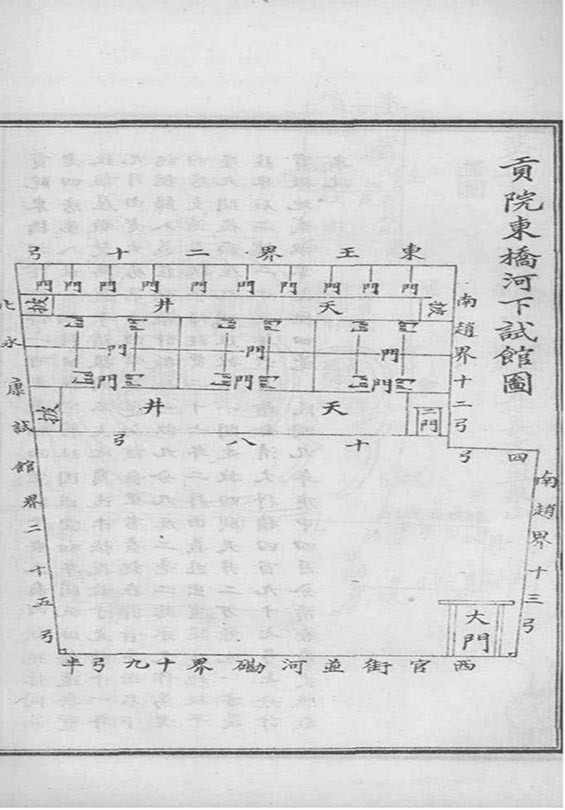 貢院東橋河下試館圖
東王界二十弓
門門門門門門門門門
天井
南趙界十二弓
北永康試館界二十五弓
門門門
門門門
門門門
天井
二門
十八弓
四弓
南趙界十三弓
大門
西官街並河磡界十九弓半